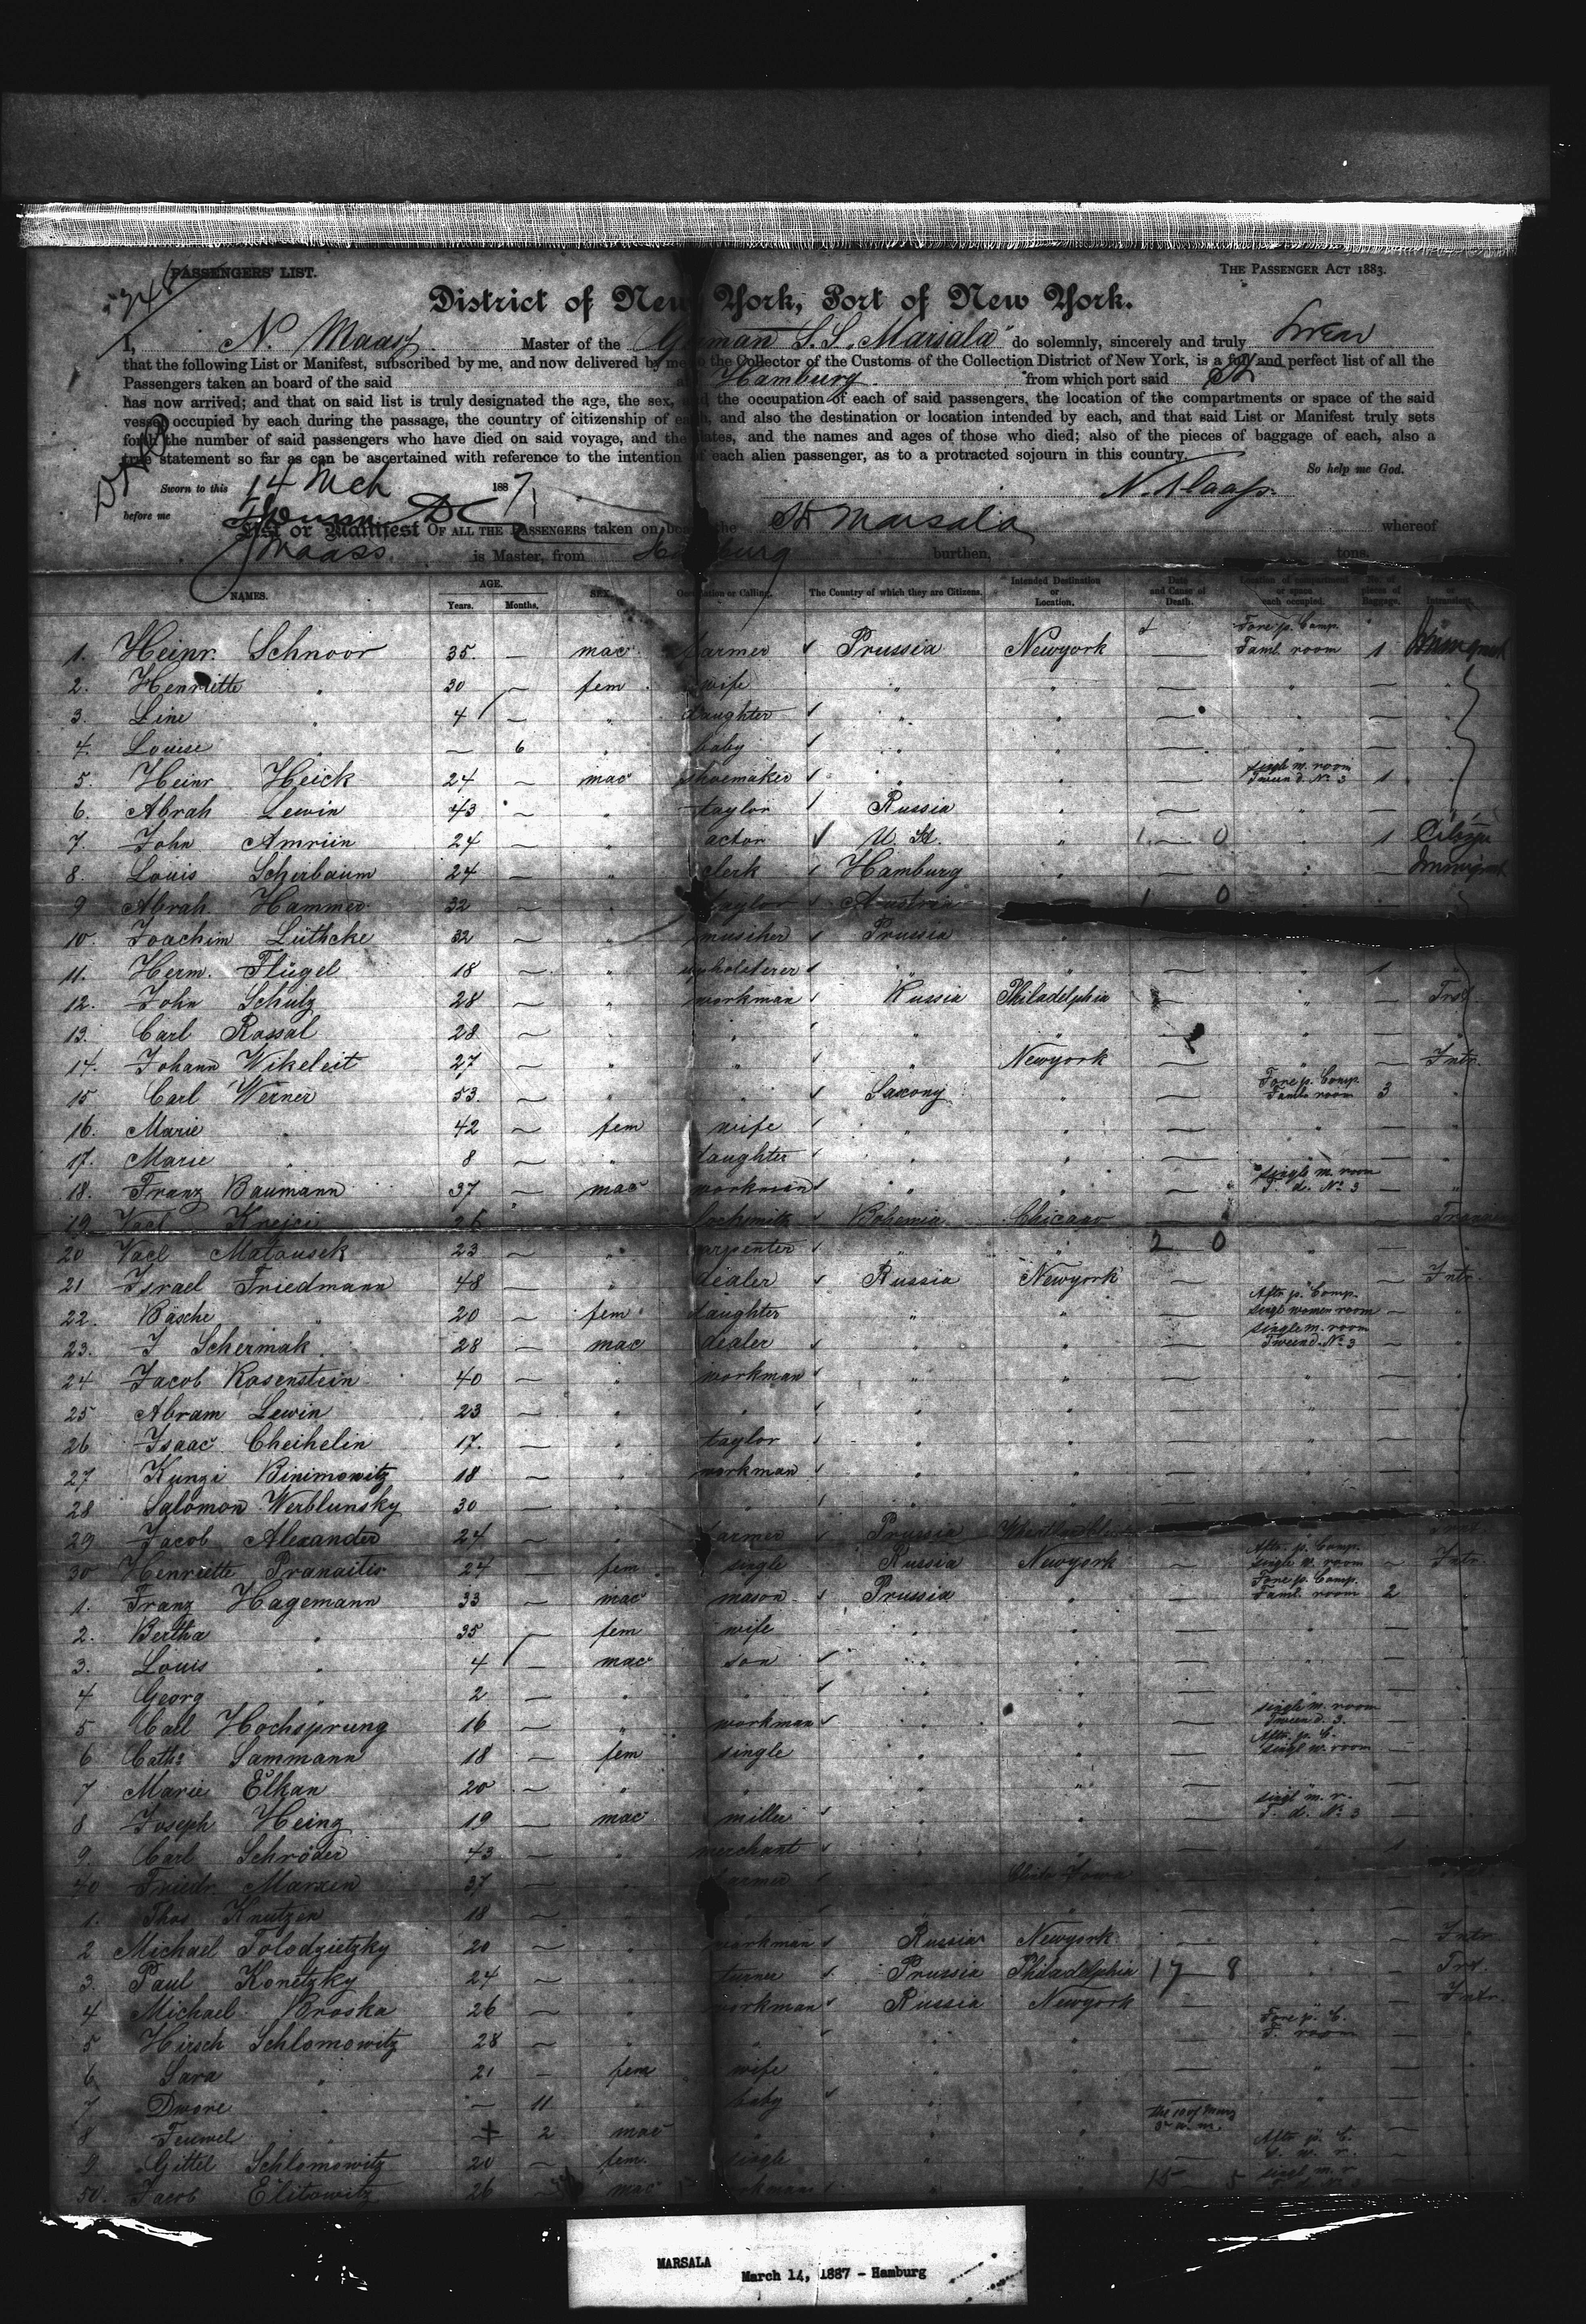 PASSENGERS' LIST. THE PASSENGER ACT 1883.
District of New York, Port of New York.
I, N. Maass Master of the German S.S. "Marsala" do solemnly, sincerely and truly swear
that the following List or Manifest, subscribed by me, and now delivered by me to the Collector of the Customs of the Collection District of New York, is a full and perfect list of all the
Passengers taken an board of the said at Hamburg from which port said SS
has now arrived; and that on said list is truly designated the age, the sex, and the occupation of each of said passengers, the location of the compartments or space of the said
vessel occupied by each, during the passage, the country of citizenship of each, and also the destination or location intended by each, and that said List or Manifest truly sets
forth the number of said passengers who have died on said voyage, and the dates, and the names and ages of those who died; also of the pieces of baggage of each, also a
true statement so far as can be ascertained with reference to the intention of each alien passenger, as to a protracted sojourn in this country.
So help me God.
Sworn to this 14 Mch 1887 N. Maass
before me
List or Manifest OF ALL THE PASSENGERS taken on board the SS Marsala whereof
Maass is Master, from Hamburg burthen, tons.
NAMES. AGE. Years. Months. SEX. Occupation or Calling. The Country of which they are Citizens. Intended Destination or Location. Date and Cause of Death. Location of compartment or space each occupied. No. of pieces of Baggage.
1. Heinr. Schnoor 35. — mac. farmer Prussia Newyork — Fore p. Comp. Faml. room 1 Immigrant
2. Henriette " 30 — fem wife " " — " —
3. Line " 4 — " daughter " " — " —
4. Louise — 6 " baby " " — " —
5. Heinr Heick 24 — mac shoemaker " " — singl m. room Tween d. No 3 1
6. Abrah Lewin 43 " taylor Russia " — " —
7. John Amriin 24 — " actor U. St. " 1 0 " 1 Citizen
8. Louis Scherbaum 24 — " clerk Hamburg " — " — Immigrant
9 Abrah. Hammer 32 — " taylor Austria 1 0
10. Joachim Lüthcke 32 — " musiker Prussia
11. Herm. Flügel 18 — " upholsterer " " — " 1
12. John Schulz 28 — " workman Russia Philadelphia " — Trst.
13. Carl Rossal 28 — " " " " — " — "
14. Johann Wikeleit 27 — " " " Newyork — " — Intr.
15 Carl Werner 53. — " " Saxony " — Fore p. Comp. Faml. room 3 "
16. Marie " 42 — fem wife " " — " — "
17. Marie " 8 — " daughter " " — " — "
18. Franz Baumann 37 — mac workman " " — single m. room T. d. No 3 — "
19 Vacl Krejci 26 lochsmith Bohemia Chicago —
20 Vacl Matousek 23 — " carpenter " " 2 0 " — "
21 Israel Friedmann 48 — " dealer Russia Newyork — " — Intr.
22. Bäsche " 20 — fem daughter " " — Aftr. p. Comp. singl women room —
23. J Schermak 28 — mac dealer " " — single m. room Tween d. No 3 — "
24 Jacob Rosenstein 40 — " workman " " — " — "
25 Abram Lewin 23 — " " " " — " — "
26 Isaac Cheihelin 17. — " taylor " " — " — "
27 Kunzi Binimowitz 18 — " workman " " — " — "
28 Salomon Werblunsky 30 — " " " " — " — "
29 Jacob Alexander 24 — " farmer Prussia
30 Henriette Pranaitis 24 — fem single Russia Newyork — Aftr. p. Comp. single w. room — Intr.
1. Franz Hagemann 33 — mac mason Prussia " — Fore p. Comp. Faml. room 2 "
2. Bertha " 35 — fem wife " " — " — "
3. Louis " 4 — mac son " " — " — "
4 Georg 2 — " " " " — " — "
5 Carl Hochsprung 16 — " workman " " — single m. room Tween d. 3. — "
6 Cath: Sammann 18 — fem single " " — Aftr. p. C. singl w. room — "
7 Marie Elkan 20 — " " " " — " — "
8 Joseph Heinz 19 — mac miller " " — singl m. r. T. d. No 3 — "
9. Carl Schröder 43 — " merchant " " — " 1
40 Friedr. Marxen 37 — " farmer Iowa
1. Thos Knutzen 18 — " " " " — " —
2 Michael Tolodzietzky 20 — " workman Russia Newyork — " — Intr.
3. Paul Konetzky 24 — " turner Prussia Philadelphia 17 8 " — Trst.
4 Michael Broska 26 — " workman Russia Newyork — " — Intr.
5 Hirsch Schlomowitz 28 — " " " " — Fore p. C. F. room — "
6 Sara " 21 — fem wife " " — " — "
7 Dwore " — 11 " baby " " — " — "
8 Feuwel + 2 mac " " " — "
9 Gittel Schlomowitz 20 — fem. single " " — Aftr p. C. — "
50. Jacob Elitowitz 26 — mac workman " " 15 5 singl m. r.
MARSALA
March 14, 1887 - Hamburg